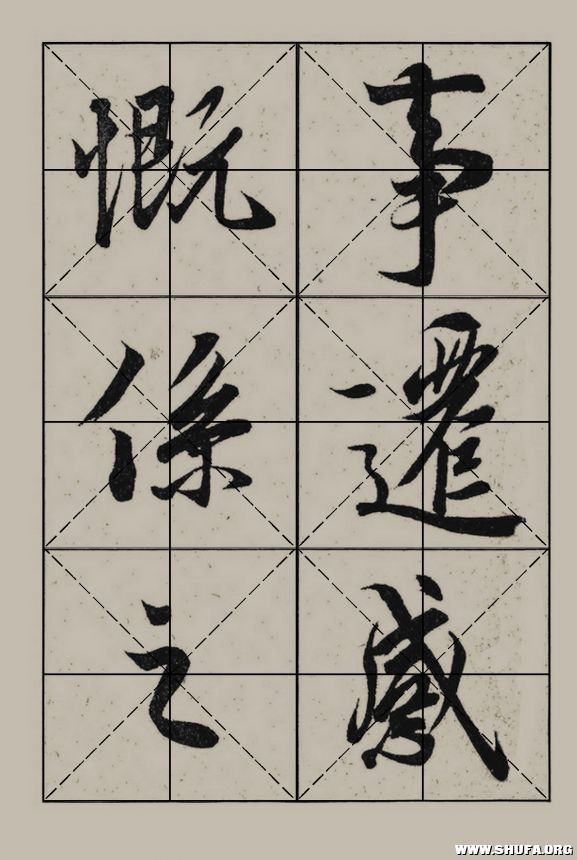 事遷感
慨係之
WWW.SHUFA.ORG